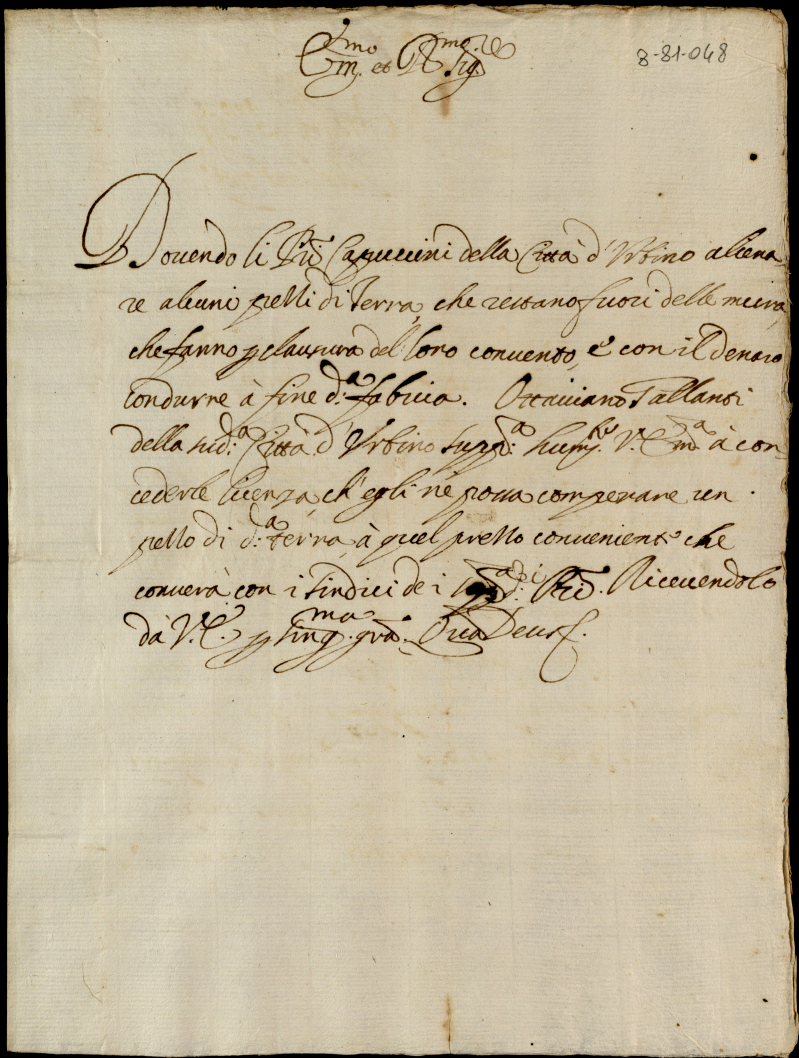 8-81-048
Em.mo et R.mo Sig.re
Dovendo li P̃ri Capuccini della Città d'Urbino aliena-
re alcuni pezzi di Terra, che restano fuori delle mura,
che fanno p clausura del loro convento, e con il denaro
condurne à fine d.a fabrica. Ottaviano Pallanti
della sud.a Città d'Urbino supp.a hum.te V. Em.a à con-
cederle licenza, ch'egli ne possa comperare un
pezzo di d.a terra, à quel prezzo conveniente che
converà con i sindici de i P̃ri. Ricevendolo
da V. E. p sing.ma gra. Qua Deus &.